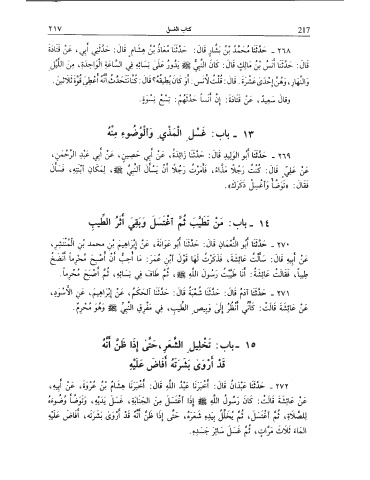 217
كتاب الغسل
٢١٧
٢٦٨ - حَدَّثَنَا مُحَمَّدُ بْنُ بَشَّارٍ قَالَ: حَدَّثَنَا مُعَاذُ بْنُ هِشَامٍ قَالَ: حَدَّثَنِي أَبِي، عَنْ قَتَادَةَ
قَالَ: حَدَّثَنَا أَنَسُ بْنُ مَالِكٍ قَالَ: كَانَ النَّبِيُّ ﷺ يَدُورُ عَلَى نِسَائِهِ فِي السَّاعَةِ الْوَاحِدَةِ، مِنَ اللَّيْلِ
وَالنَّهَارِ، وَهُنَّ إِحْدَى عَشْرَةَ. قَالَ: قُلْتُ لِأَنَسٍ: أَوَ كَانَ يُطِيقُهُ؟ قَالَ: كُنَّا نَتَحَدَّثُ أَنَّهُ أُعْطِيَ قُوَّةَ ثَلَاثِينَ.
وَقَالَ سَعِيدٌ، عَنْ قَتَادَةَ: إِنَّ أَنَسًا حَدَّثَهُمْ: تِسْعُ نِسْوَةٍ.
١٣ - باب: غَسْلِ الْمَذْيِ وَالْوُضُوءِ مِنْهُ
٢٦٩ - حَدَّثَنَا أَبُو الْوَلِيدِ قَالَ: حَدَّثَنَا زَائِدَةُ، عَنْ أَبِي حَصِينٍ، عَنْ أَبِي عَبْدِ الرَّحْمَنِ،
عَنْ عَلِيٍّ قَالَ: كُنْتُ رَجُلًا مَذَّاءً، فَأَمَرْتُ رَجُلًا أَنْ يَسْأَلَ النَّبِيَّ ﷺ، لِمَكَانِ ابْنَتِهِ، فَسَأَلَ
فَقَالَ: «تَوَضَّأْ وَاغْسِلْ ذَكَرَكَ».
١٤ - باب: مَنْ تَطَيَّبَ ثُمَّ اغْتَسَلَ وَبَقِيَ أَثَرُ الطِّيبِ
٢٧٠ - حَدَّثَنَا أَبُو النُّعْمَانِ قَالَ: حَدَّثَنَا أَبُو عَوَانَةَ، عَنْ إِبْرَاهِيمَ بْنِ مُحَمَّدِ بْنِ الْمُنْتَشِرِ،
عَنْ أَبِيهِ قَالَ: سَأَلْتُ عَائِشَةَ، فَذَكَرْتُ لَهَا قَوْلَ ابْنِ عُمَرَ: مَا أُحِبُّ أَنْ أُصْبِحَ مُحْرِمًا أَنْضَخُ
طِيبًا، فَقَالَتْ عَائِشَةُ: أَنَا طَيَّبْتُ رَسُولَ اللَّهِ ﷺ، ثُمَّ طَافَ فِي نِسَائِهِ، ثُمَّ أَصْبَحَ مُحْرِمًا.
٢٧١ - حَدَّثَنَا آدَمُ قَالَ: حَدَّثَنَا شُعْبَةُ قَالَ: حَدَّثَنَا الْحَكَمُ، عَنْ إِبْرَاهِيمَ، عَنِ الْأَسْوَدِ،
عَنْ عَائِشَةَ قَالَتْ: كَأَنِّي أَنْظُرُ إِلَى وَبِيصِ الطِّيبِ، فِي مَفْرِقِ النَّبِيِّ ﷺ وَهُوَ مُحْرِمٌ.
١٥ - باب: تَخْلِيلِ الشَّعَرِ، حَتَّى إِذَا ظَنَّ أَنَّهُ
قَدْ أَرْوَى بَشَرَتَهُ أَفَاضَ عَلَيْهِ
٢٧٢ - حَدَّثَنَا عَبْدَانُ قَالَ: أَخْبَرَنَا عَبْدُ اللَّهِ قَالَ: أَخْبَرَنَا هِشَامُ بْنُ عُرْوَةَ، عَنْ أَبِيهِ،
عَنْ عَائِشَةَ قَالَتْ: كَانَ رَسُولُ اللَّهِ ﷺ إِذَا اغْتَسَلَ مِنَ الْجَنَابَةِ، غَسَلَ يَدَيْهِ، وَتَوَضَّأَ وُضُوءَهُ
لِلصَّلَاةِ، ثُمَّ اغْتَسَلَ، ثُمَّ يُخَلِّلُ بِيَدِهِ شَعَرَهُ، حَتَّى إِذَا ظَنَّ أَنَّهُ قَدْ أَرْوَى بَشَرَتَهُ، أَفَاضَ عَلَيْهِ
الْمَاءَ ثَلَاثَ مَرَّاتٍ، ثُمَّ غَسَلَ سَائِرَ جَسَدِهِ.